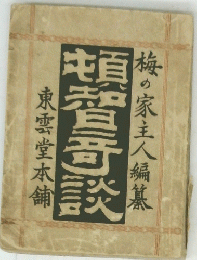 梅の家主人編纂
頓智奇談
東雲堂本舗